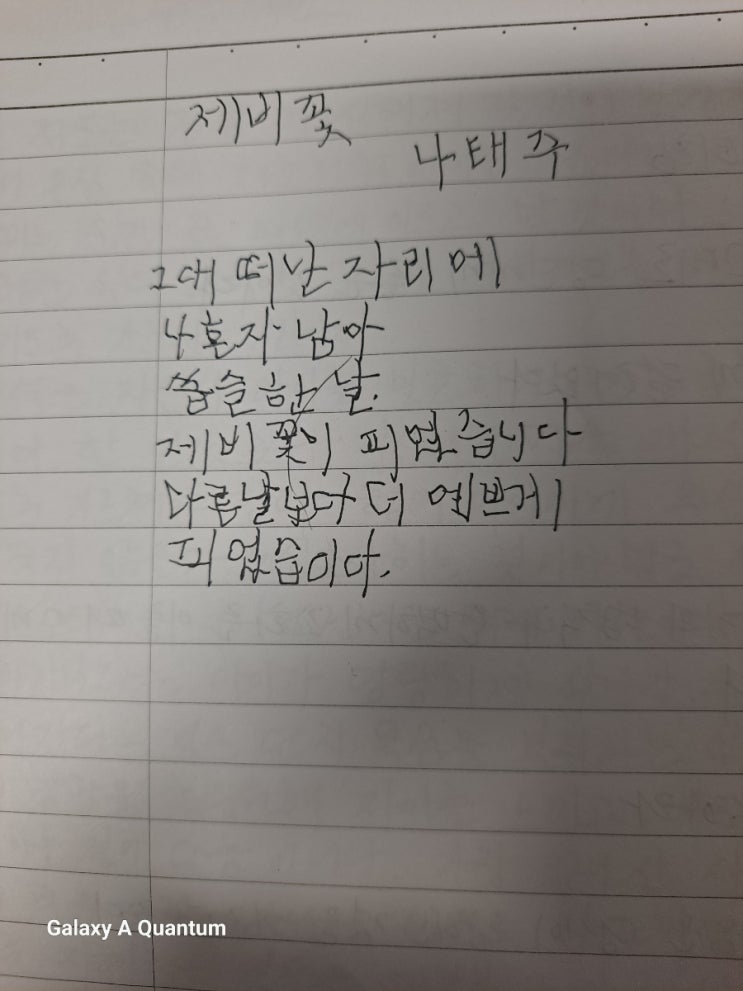 제비꽃
나태주
그대 떠난 자리에
나 혼자 남아
쓸쓸한 날.
제비꽃이 피었습니다
다른날보다 더 예쁘게
피었습니다.
Galaxy A Quantum